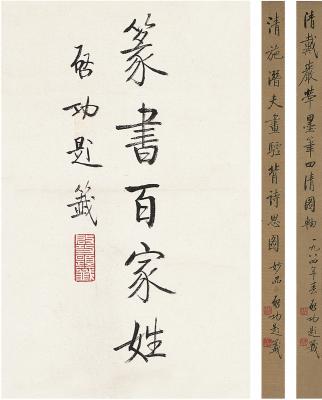 篆書百家姓
啓功題籤
清施潛夫畫驢背詩思圖 妙品 啓功題籤
清戴嚴犖墨筆四清圖軸 一九八四年春 啓功題籤